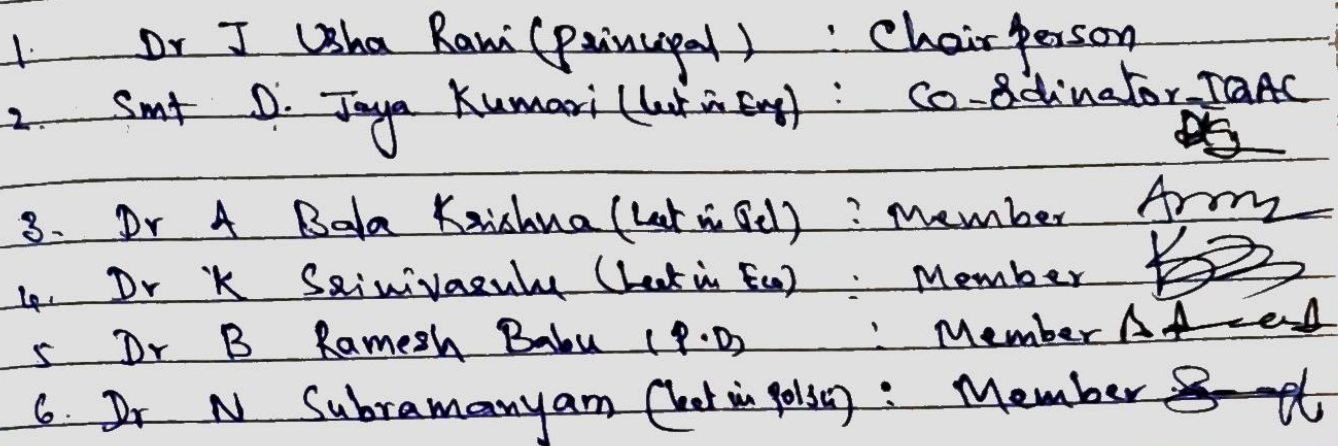 1. Dr J Usha Rani (Principal) : Chairperson
2. Smt D. Jaya Kumari (Lect in Eng) : Co-ordinator-IQAC
3. Dr A Bala Krishna (Lect in Tel) : Member
4. Dr K Srinivasulu (Lect in Eco) : Member
5 Dr B Ramesh Babu (P.D) : Member
6. Dr N Subramanyam (Lect in Pol Sci) : Member